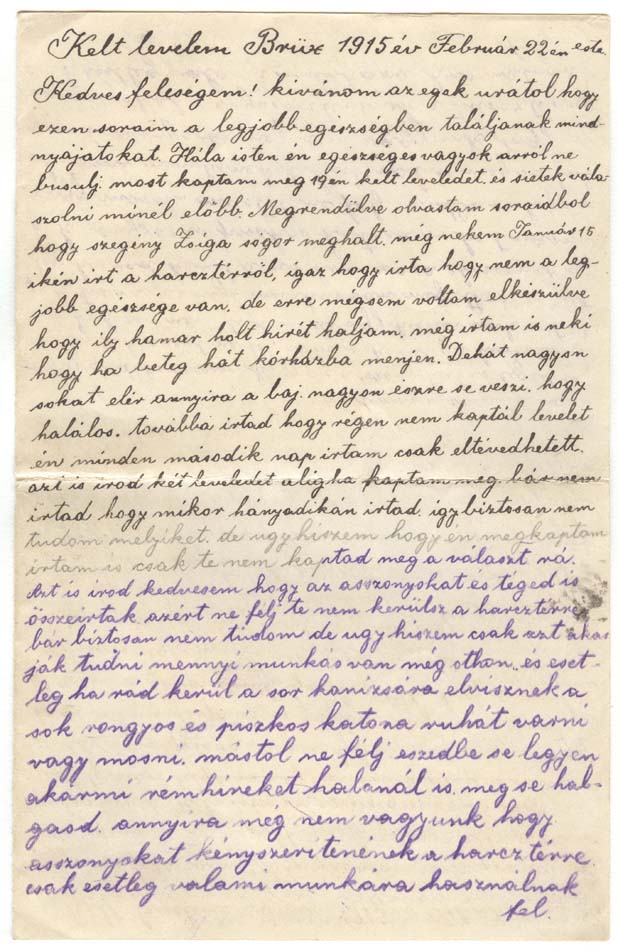 Kelt levelem Brüx 1915 év Február 22 én este.
Kedves feleségem! kivánom az egek urától hogy
ezen soraim a legjobb egészségben találjanak mind-
nyájatokat. Hála isten én egészséges vagyok arról ne
busulj. most kaptam meg 19 én kelt leveledet. és sietek vála-
szolni minél előbb. Megrendülve olvastam soraidbol
hogy szegény Zsiga sógor meghalt. még nekem Január 15
ikén irt a harcztérről, igaz hogy irta hogy nem a leg-
jobb egészsége van. de erre mégsem voltam elkészülve
hogy ily hamar holt hirét haljam. még irtam is neki
hogy ha beteg hát kórházba menjen. Dehát nagyon
sokat elér annyira a baj nagyon észre se veszi. hogy
halálos. továbba irtad hogy régen nem kaptál levelet
én minden második nap irtam csak eltévedhetett.
azt is irod két leveledet aligha kaptam meg. bár nem
irtad hogy mikor hányadikán irtad. igy biztosan nem
tudom melyiket. de ugy hiszem hogy én megkaptam
irtam is csak te nem kaptad meg a választ rá.
Azt is irod kedvesem hogy az asszonyokat és téged is
összeirtak azért ne félj te nem kerülsz a harcztérre
bár biztosan nem tudom de ugy hiszem csak azt akar
ják tudni mennyi munkás van még othon. és eset-
leg ha rád kerül a sor kanizsára elvisznek a
sok rongyos és piszkos katona ruhát varni
vagy mosni. mástol ne félj eszedbe se legyen
akármi rémhireket halanál is. meg se hal-
gasd. annyira még nem vagyunk hogy
asszonyokat kényszeritenének a harcz térre.
csak esetleg valami munkára használnak
fel.